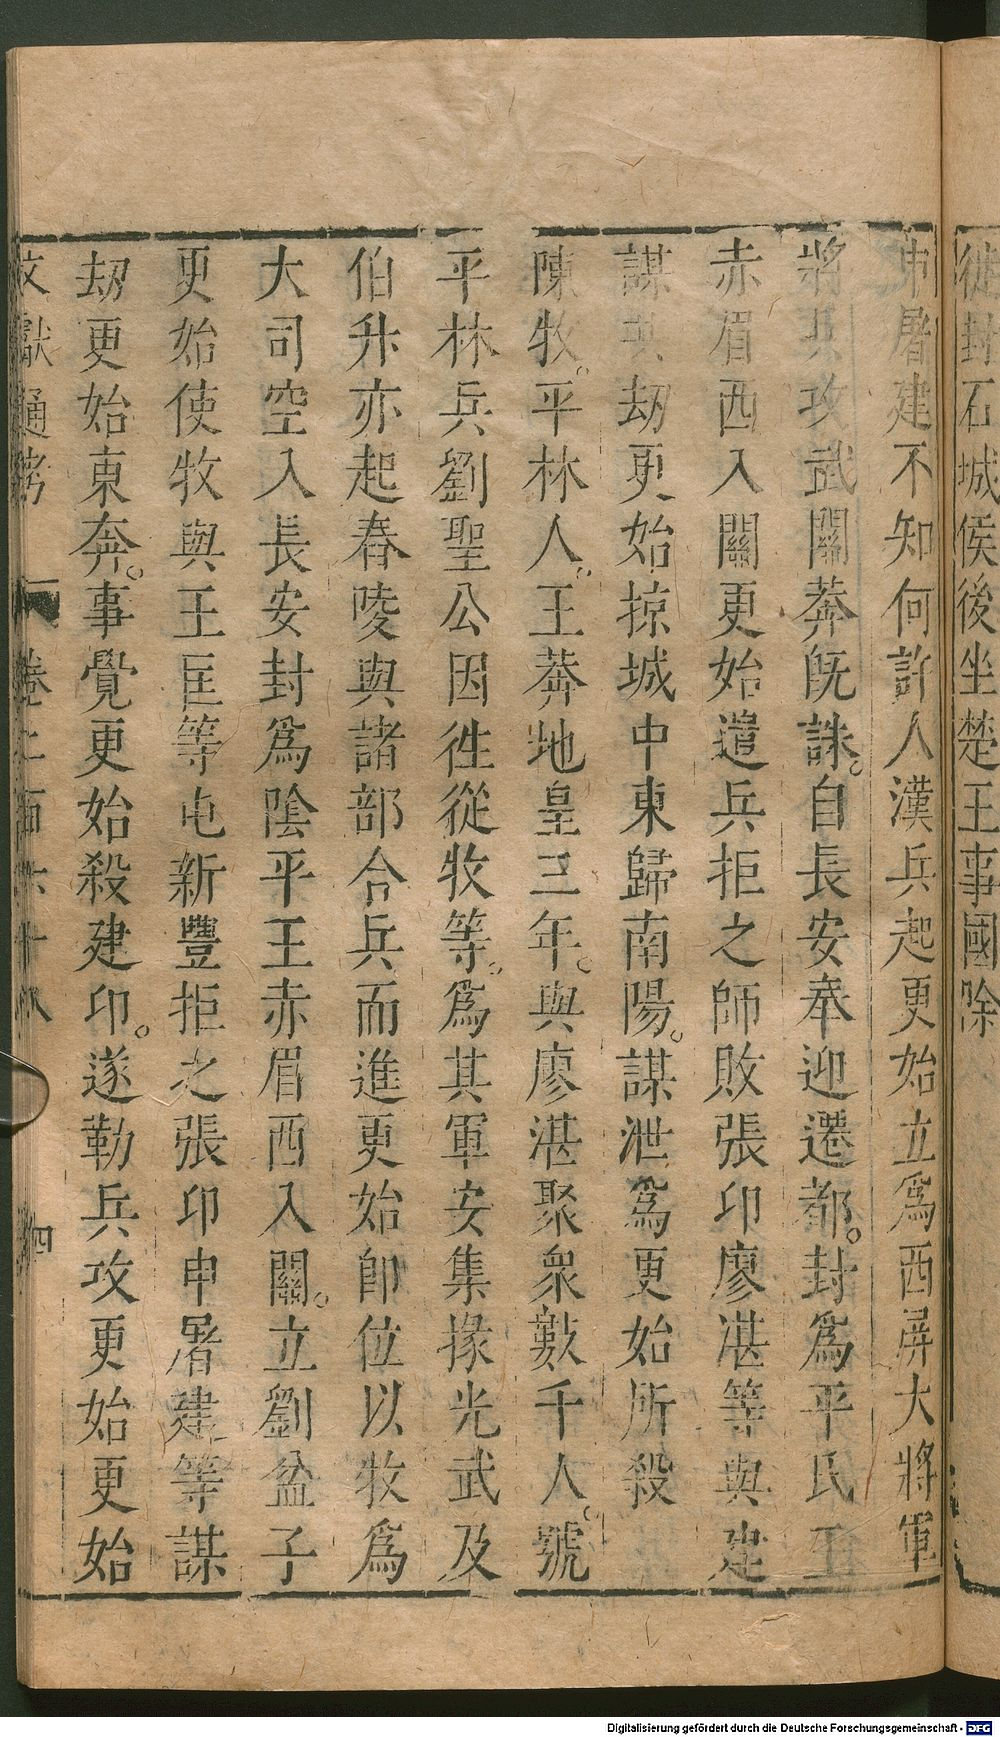 徙封石城侯後坐楚王事國除
申屠建不知何許人漢兵起更始立爲西屏大將軍
將兵攻武關莽旣誅。自長安奉迎遷都。封爲平氏王
赤眉西入關更始遣兵拒之師敗張卬廖湛等與建
謀共劫更始掠城中東歸南陽。謀泄爲更始所殺
陳牧。平林人。王莽地皇三年。與廖湛聚衆數千人。號
平林兵劉聖公因徃從牧等。爲其軍安集掾光武及
伯升亦起舂陵與諸部合兵而進更始卽位以牧爲
大司空入長安封爲陰平王赤眉西入關。立劉盆子
更始使牧與王匡等屯新豐拒之張卬申屠建等謀
劫更始東奔。事覺更始殺建卬。遂勒兵攻更始更始
文獻通考 卷二百六十八 四
Digitalisierung gefördert durch die Deutsche Forschungsgemeinschaft - DFG